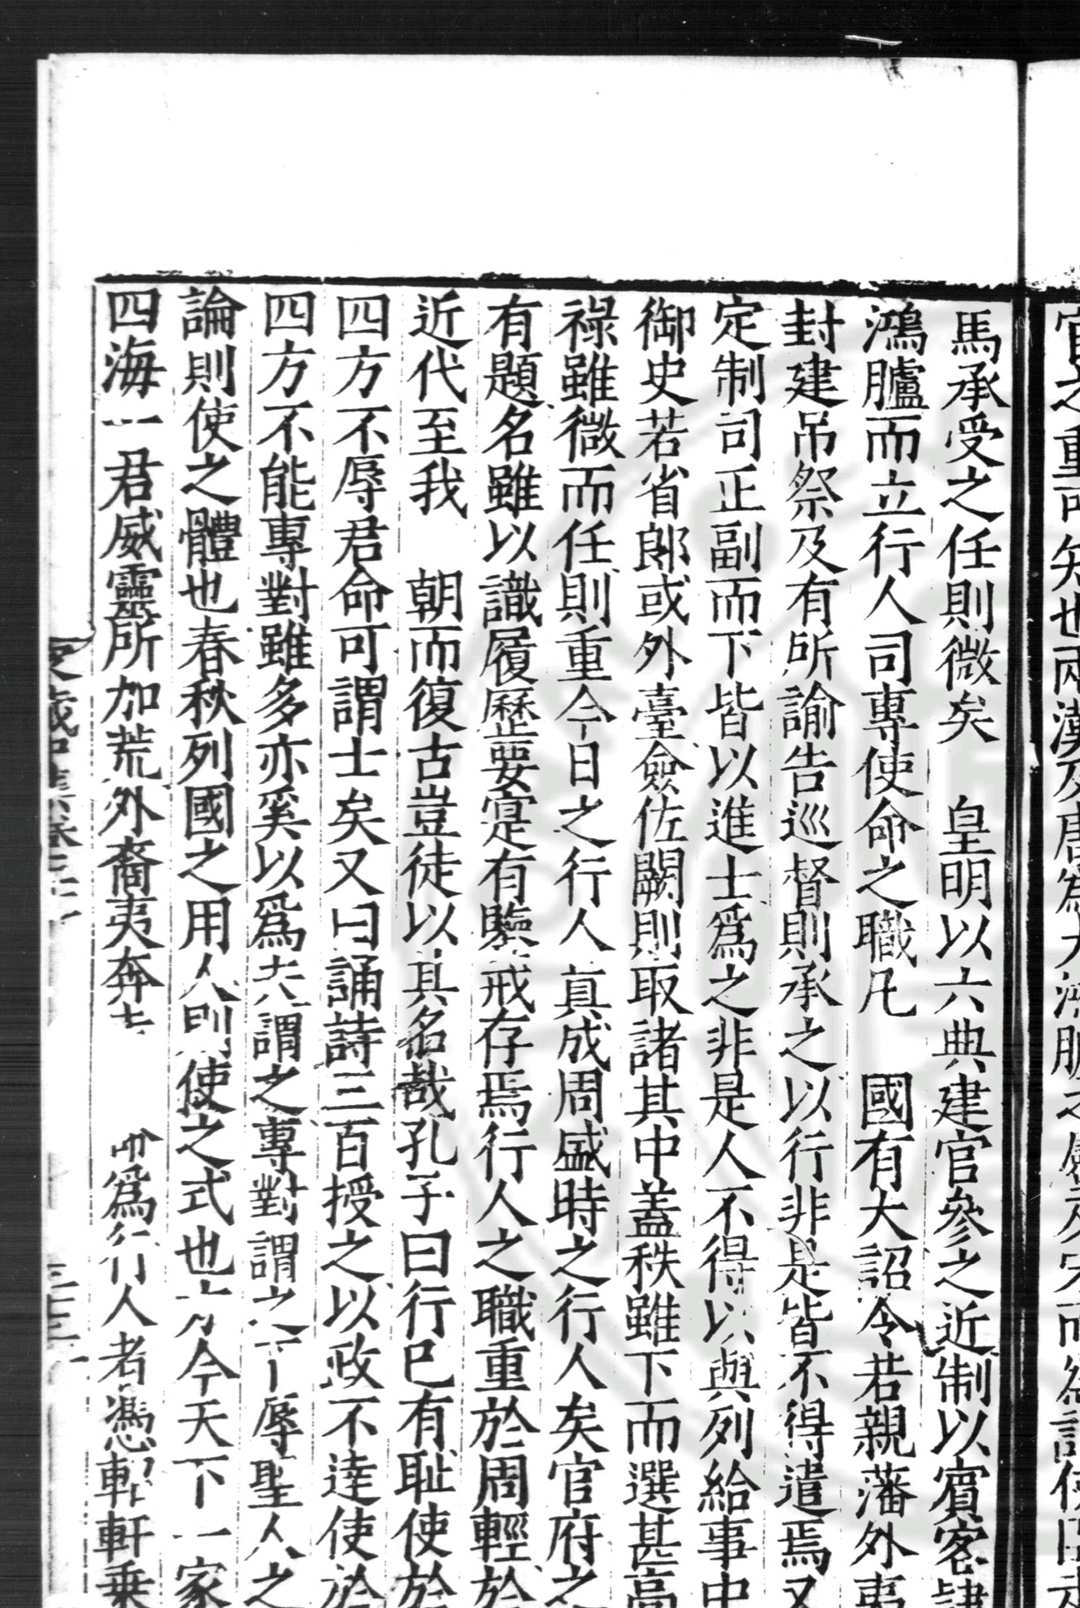 官之重可知也兩漢及唐爲大鴻臚之屬
馬承受之任則微矣　皇明以六典建官參之近制以賓客隷
鴻臚而立行人司專使命之職凡　國有大詔令若親藩外夷
封建吊祭及有所諭告巡督則承之以行非是皆不得遣焉又
定制司正副而下皆以進士爲之非是人不得以與列給事中
御史若省郎或外臺僉佐闕則取諸其中蓋秩雖下而選甚高
祿雖微而任則重今日之行人真成周盛時之行人矣官府之
有題名雖以識履歷要寔有鑒戒存焉行人之職重於周輕於
近代至我　朝而復古豈徒以其名哉孔子曰行已有耻使於
四方不辱君命可謂士矣又曰誦詩三百授之以政不達使於
四方不能專對雖多亦奚以爲夫謂之專對謂之不辱聖人之
論則使之體也春秋列國之用人則使之式也方今天下一家
四海一君威靈所加荒外裔夷奔走　爲行人者憑軾軒乘